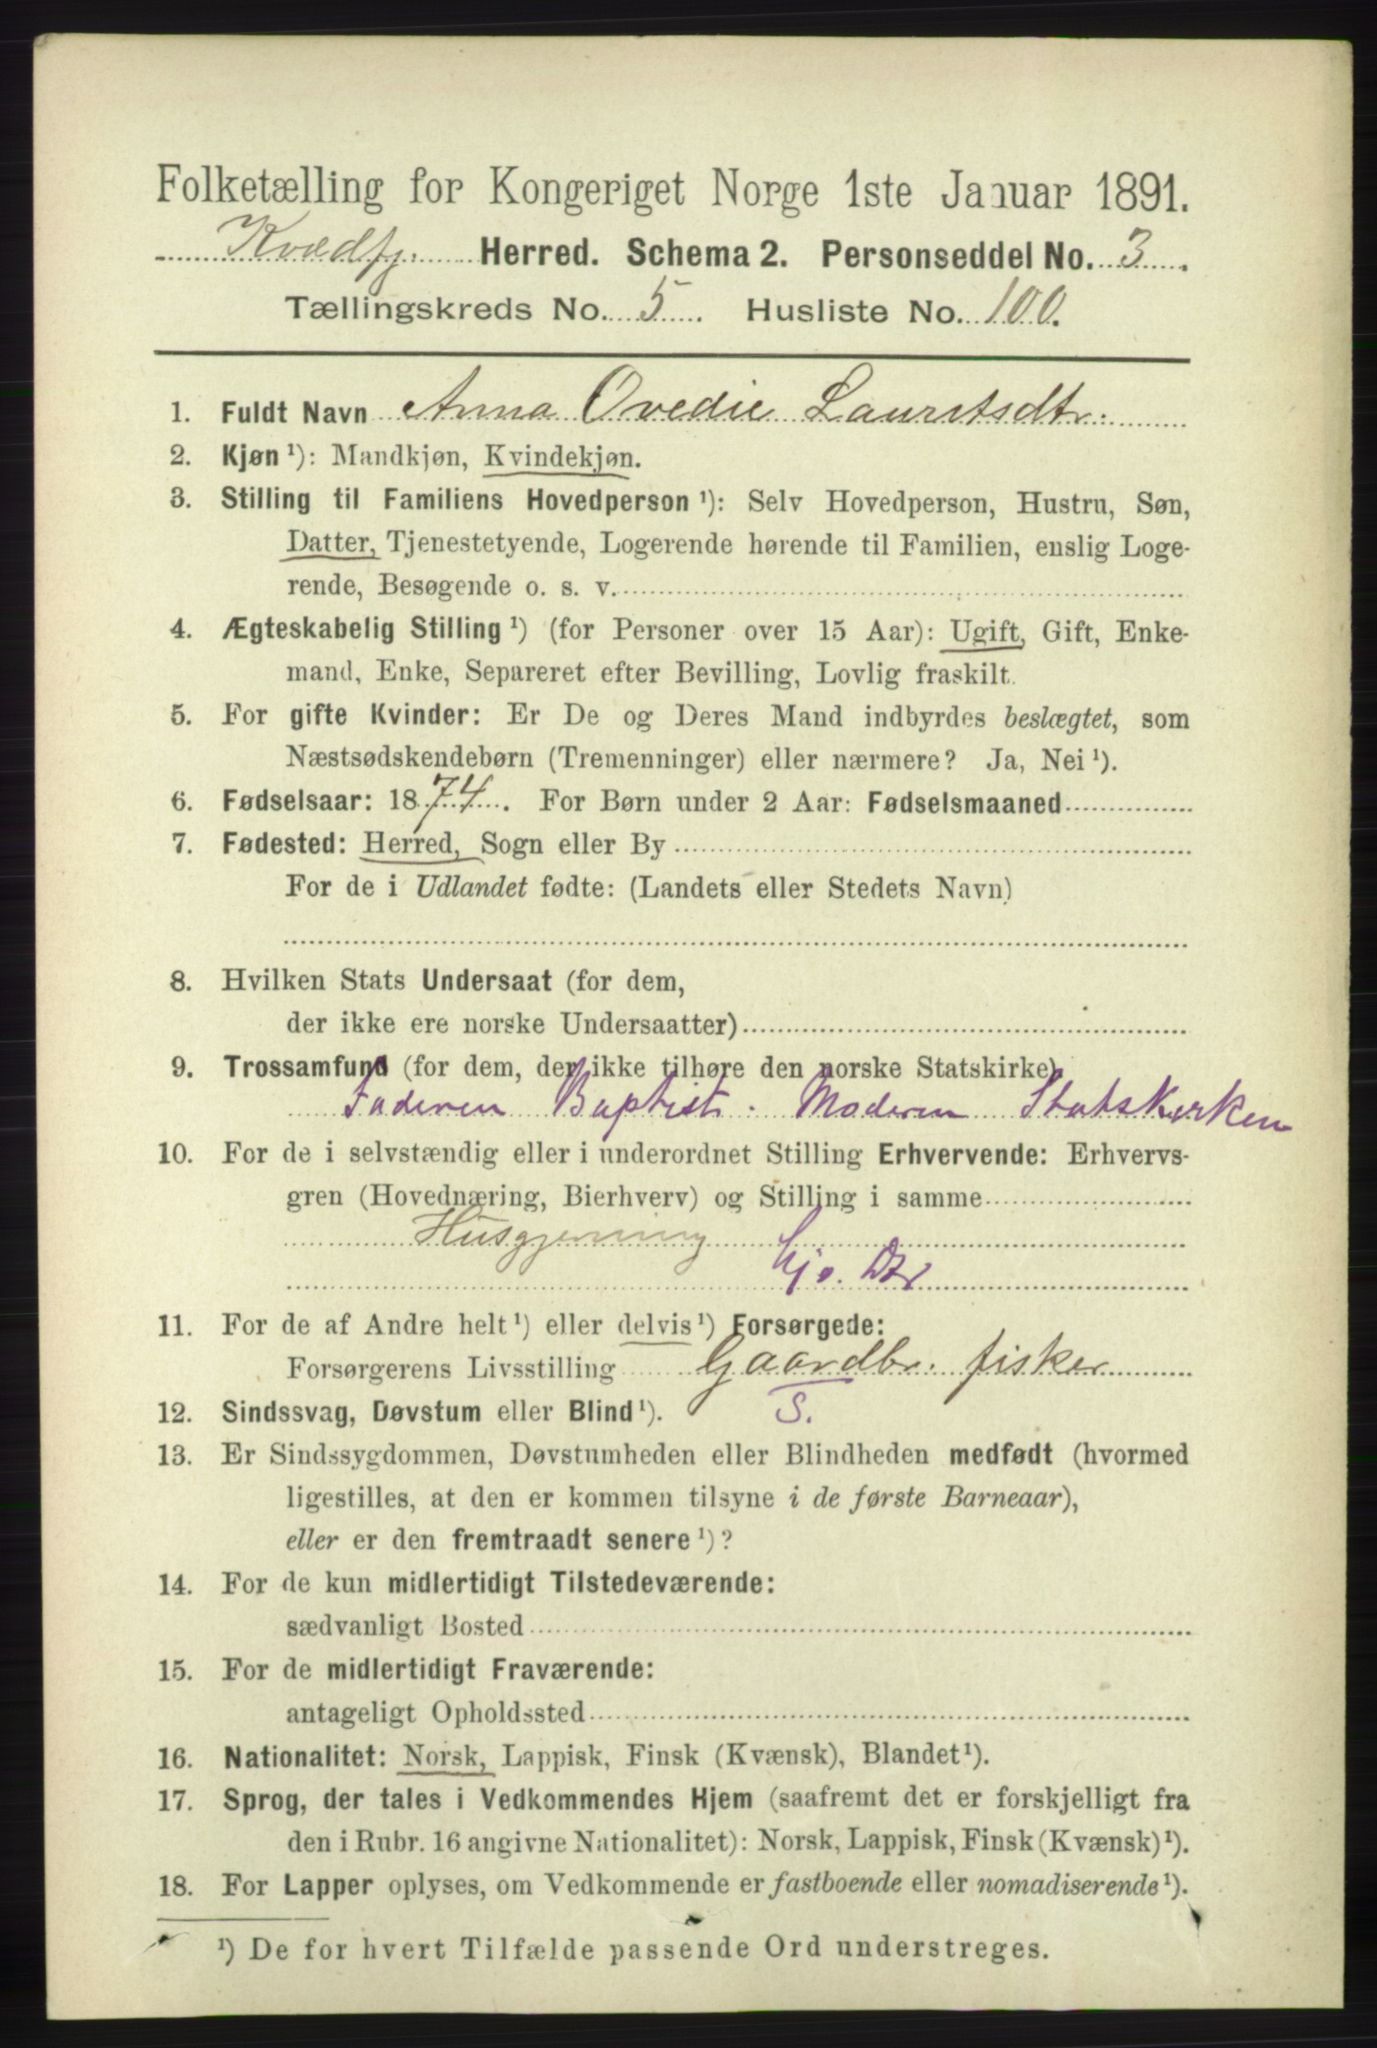 Folketælling for Kongeriget Norge 1ste Januar 1891.
Kvædfj. Herred. Schema 2. Personseddel No. 3.
Tællingskreds No. 5. Husliste No. 100.
1. Fuldt Navn Anna Ovedie Lauritsdtr.
2. Kjøn ¹): Mandkjøn, Kvindekjøn.
3. Stilling til Familiens Hovedperson ¹): Selv Hovedperson, Hustru, Søn,
Datter, Tjenestetyende, Logerende hørende til Familien, enslig Loge-
rende, Besøgende o. s. v.
4. Ægteskabelig Stilling ¹) (for Personer over 15 Aar): Ugift, Gift, Enke-
mand, Enke, Separeret efter Bevilling, Lovlig fraskilt.
5. For gifte Kvinder: Er De og Deres Mand indbyrdes beslægtet, som
Næstsødskendebørn (Tremenninger) eller nærmere? Ja, Nei ¹).
6. Fødselsaar: 1874. For Børn under 2 Aar: Fødselsmaaned
7. Fødested: Herred, Sogn eller By
For de i Udlandet fødte: (Landets eller Stedets Navn)
8. Hvilken Stats Undersaat (for dem,
der ikke ere norske Undersaatter)
9. Trossamfund (for dem, der ikke tilhøre den norske Statskirke)
Faderen Baptist. Moderen Statskirken
10. For de i selvstændig eller i underordnet Stilling Erhvervende: Erhvervs-
gren (Hovednæring, Bierhverv) og Stilling i samme
Husgjerning
Gjo. Dtr
11. For de af Andre helt ¹) eller delvis ¹) Forsørgede:
Forsørgerens Livsstilling Gaardbr. fisker
12. Sindssvag, Døvstum eller Blind ¹). S.
13. Er Sindssygdommen, Døvstumheden eller Blindheden medfødt (hvormed
ligestilles, at den er kommen tilsyne i de første Barneaar),
eller er den fremtraadt senere ¹)?
14. For de kun midlertidigt Tilstedeværende:
sædvanligt Bosted
15. For de midlertidigt Fraværende:
antageligt Opholdssted
16. Nationalitet: Norsk, Lappisk, Finsk (Kvænsk), Blandet ¹).
17. Sprog, der tales i Vedkommendes Hjem (saafremt det er forskjelligt fra
den i Rubr. 16 angivne Nationalitet): Norsk, Lappisk, Finsk (Kvænsk) ¹).
18. For Lapper oplyses, om Vedkommende er fastboende eller nomadiserende ¹).
¹) De for hvert Tilfælde passende Ord understreges.